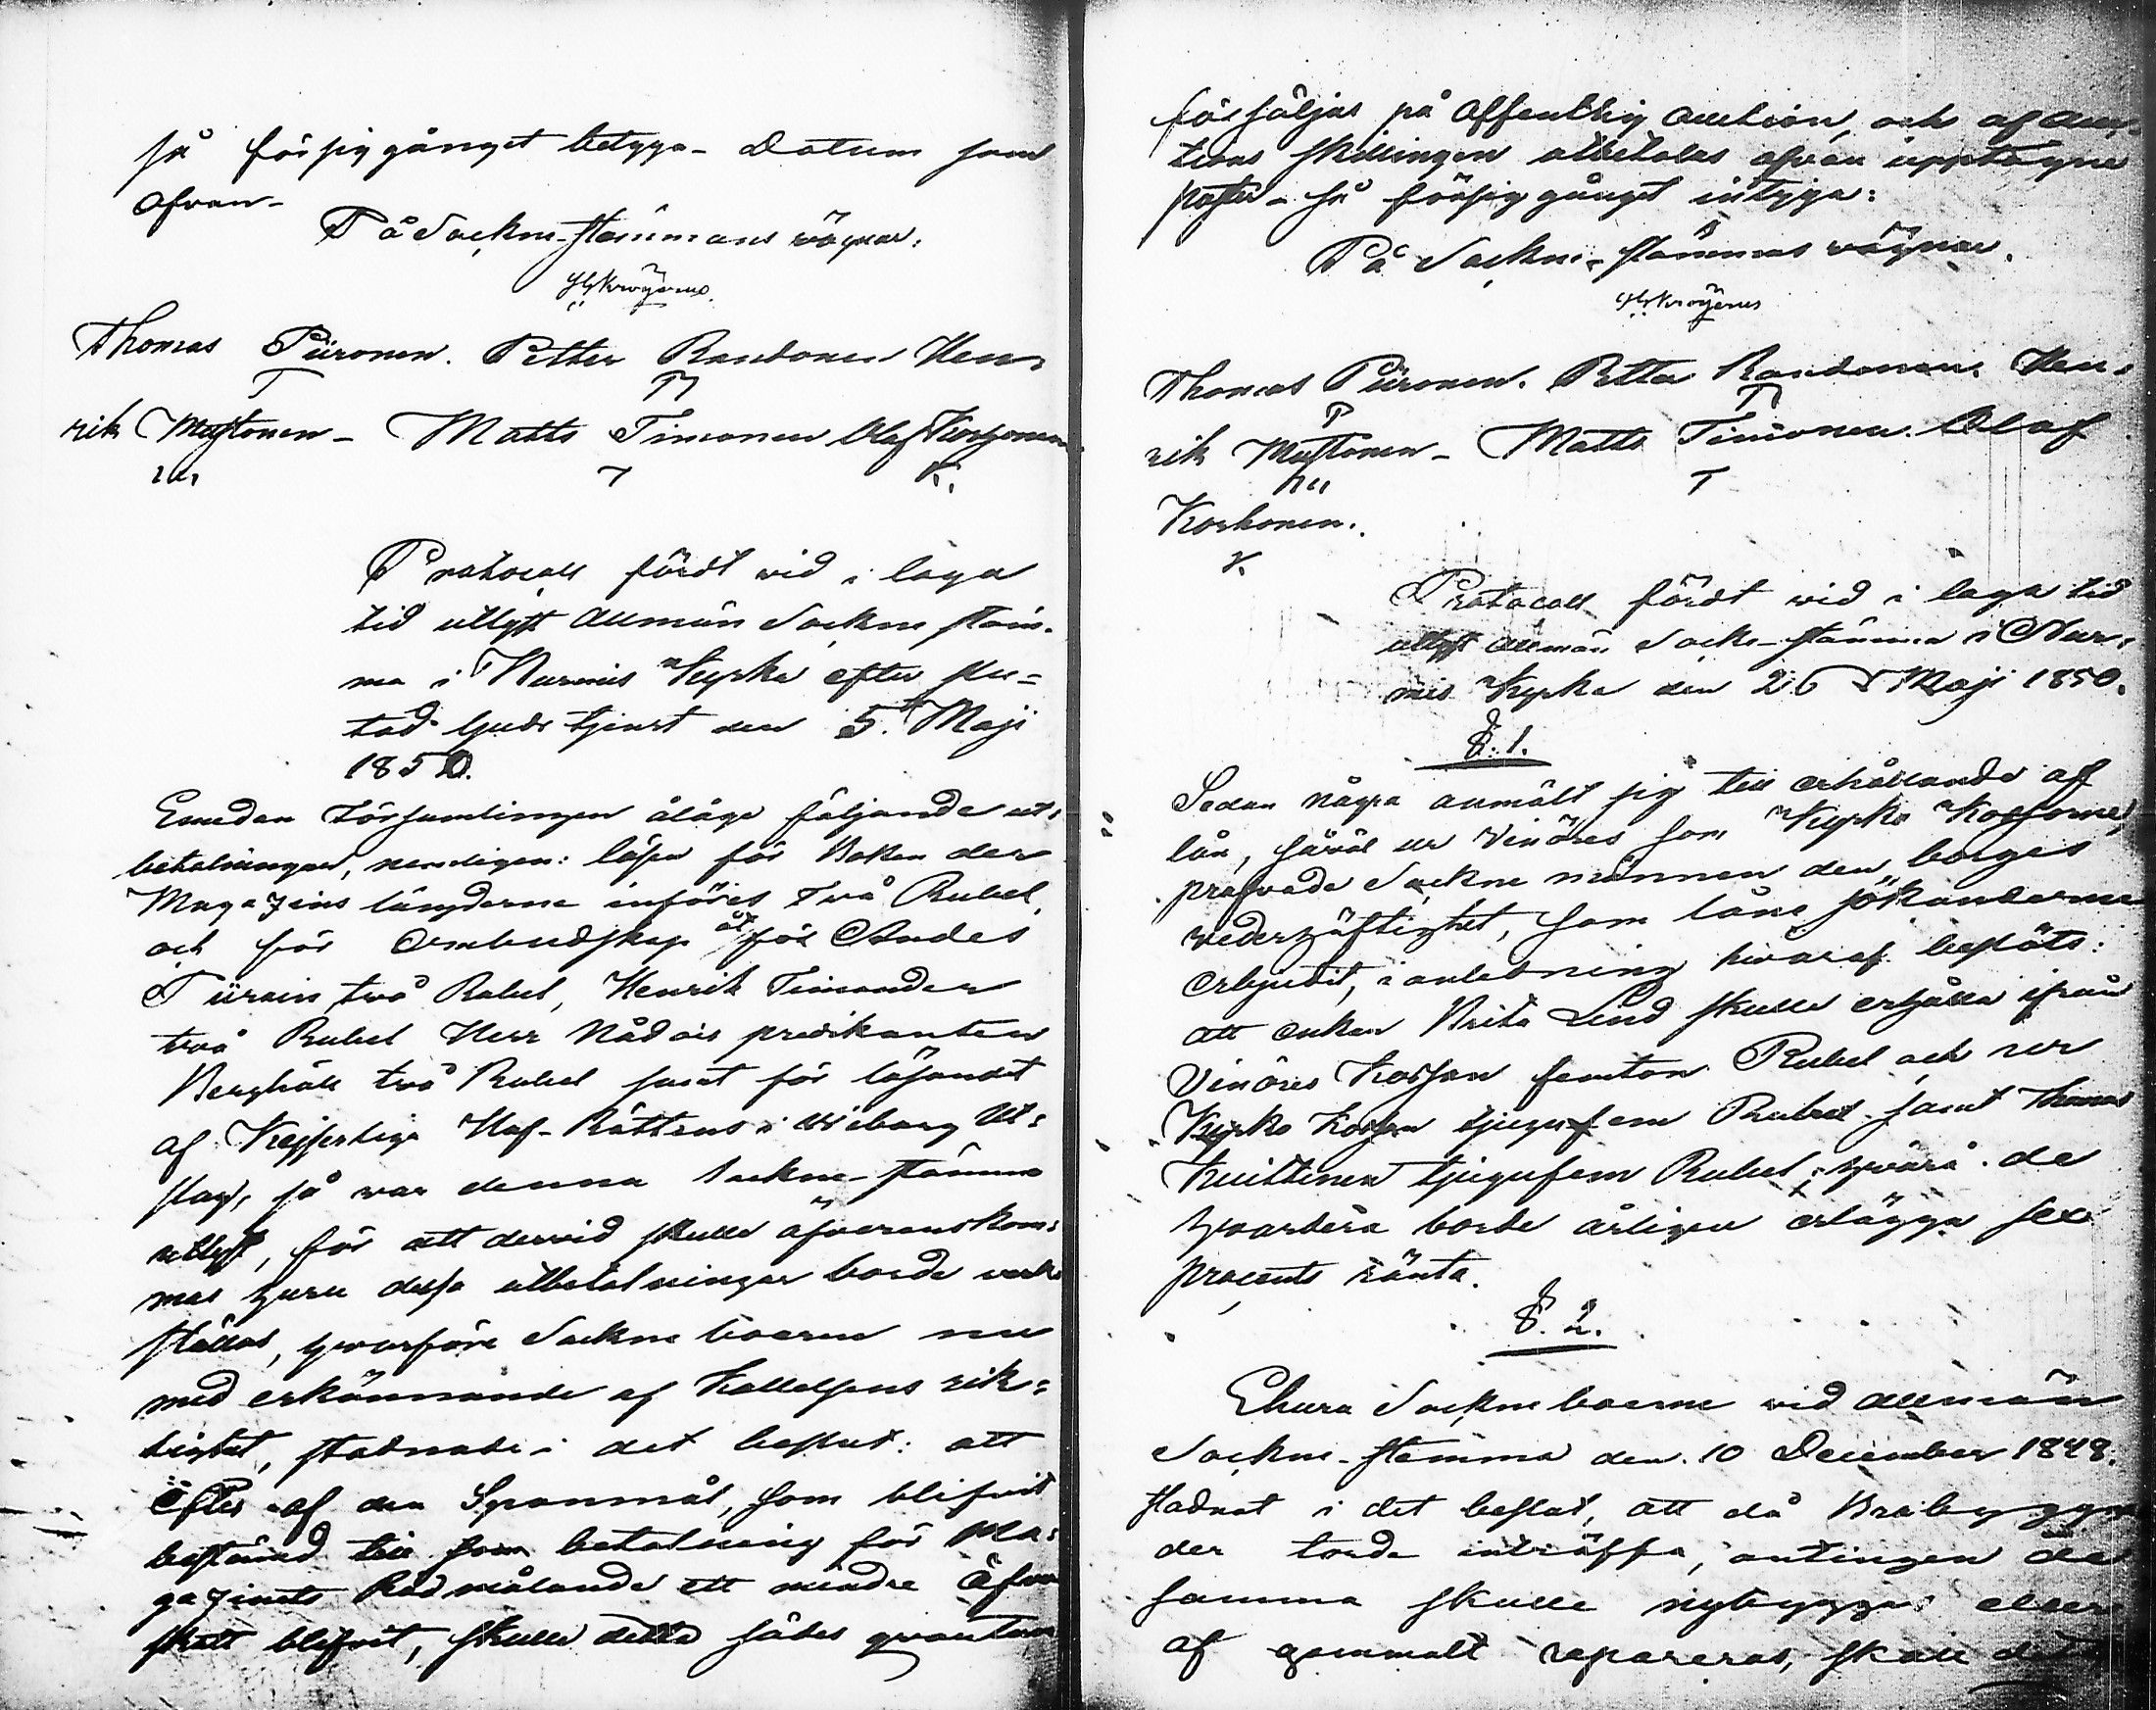 så försiggånget betyga. Datum som
ofvan.
På Sockne-stämmans vägnar:
Thomas Piironen. Petter Rautonen Hen-
T M
rik Mustonen - Matts Timonen Olof Korhonen
m. T K.
Protocoll fördt wid i laga
tid utlyst allmän Sockne stäm-
ma i Nurmis Kyrka efter slu-
tad Gudstjenst den 5. Maji
1850.
Emedan Församlingen åläge följande ut-
betalningar, nemligen: lösen för Boken der
Magazins längderne införes två Rubel,
och för ombudskap åt för Anders
två Rubel, Henrik Timonder
två Rubel Herr Nådårs predikanten
Berghäll två Rubel samt för lösandet
af Kejserliga Hof-Rättens i Wiborg Ut-
slag, så var denna Sockne-stämma
utlyst, för att dervid skulle öfverenskom-
mas huru dessa utbetalningar borde verk-
ställas, hvarföre Sockne boerne nu
med erkännande af Kallelsens rik-
tighet, stadnade i det beslut: att
Efter af den Spanmål, som blifvit
bestämd till som betalning för Ma-
gazinets Rödmålande ett mindre Öfver
skott blifvit, skulle detta sädes qvantum
försäljas på Offentlig auction, och af auc-
tions skillingen utbetalas ofvan upptagne
poster - så försiggånget intyga:
På Sockne-stämmas vägnar.
Thomas Piironen. Petter Rautonen. Hen-
P M
rik Mustonen - Matts Timonen. Olof
m T
Korhonen.
K.
Protocoll fördt wid i laga tid
utlyst allmän Socke-stämma i Nur-
mis Kyrka den 26 Maji 1850.
§. 1.
Sedan några anmält sig till erhållande af
lån, såväl ur Vinöres som Kyrko Kassorne,
pröfvade Sockne männen den borges
vederhäftighet, som låne sökanderne
erbjudit, i anledning hvaraf beslöts:
att enkan Brita Lind skulle erhålla ifrån
Vinöres Kassan femton Rubel och ur
Kyrko Kassan tjugufem Rubel samt Thomas
Kuittinen tjugufem Rubel; hvarå de
hvardera borde årligen erlägga sex
procents ränta.
§. 2.
Ehuru Sockneboerne vid allmän
Sockne-stämma den 10 December 1848.
stadnat i det beslut, att då Brobyggna
der torde inträffa, antingen de
samma skulle nybyggas eller
af gammalt repareras, skall det